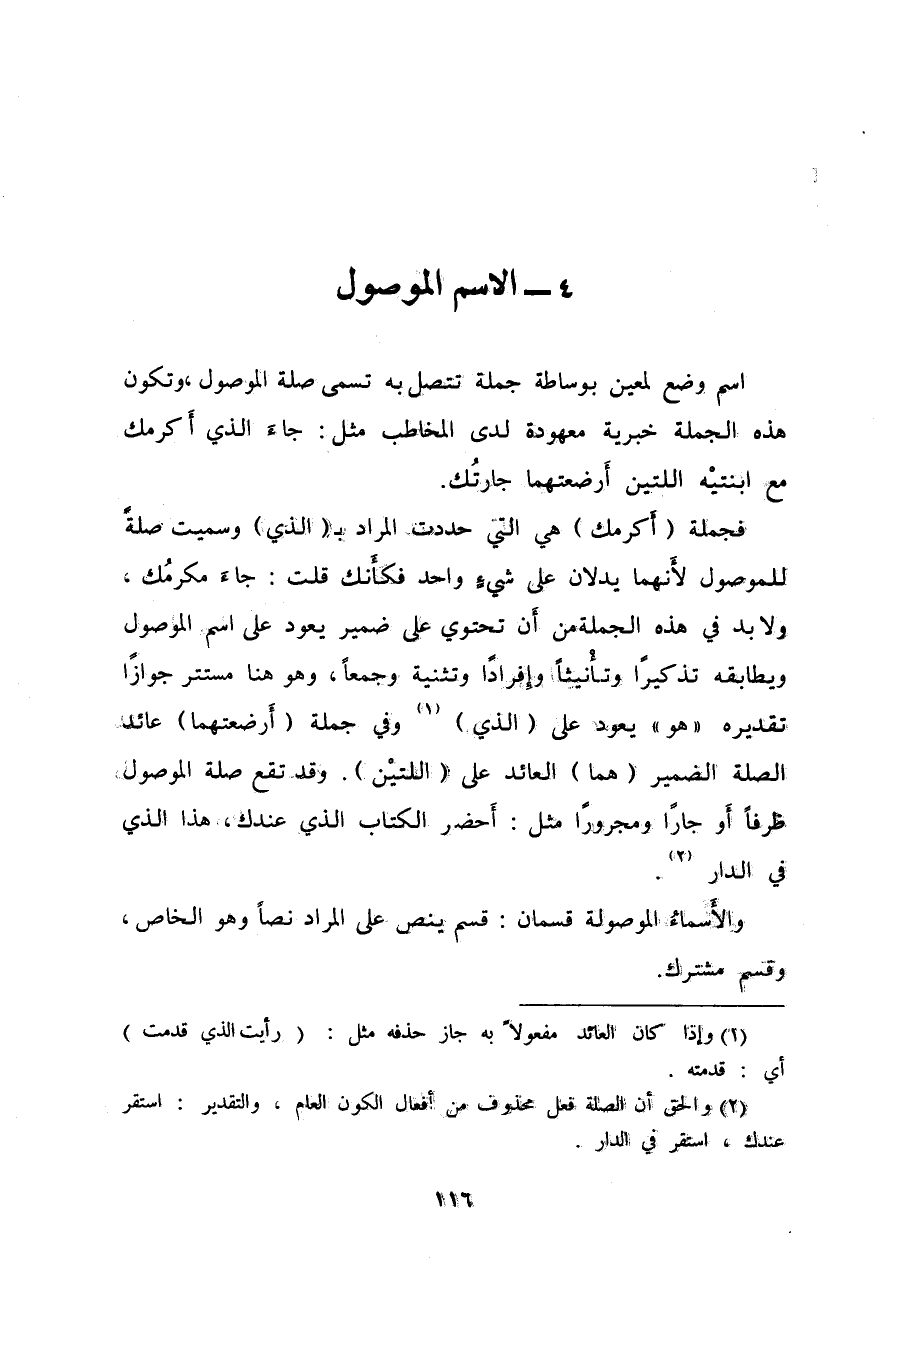 ٤ ــ الاسم الموصول
اسم وضع لمعين بوساطة جملة تتصل به تسمى صلة الموصول ،وتكون
هذه الجملة خبرية معهودة لدى المخاطب مثل : جاءَ الذي أَكرمك
مع ابنتيْه اللتين أَرضعتهما جارتُك.
فجملة ( أَكرمك ) هي التي حددت المراد بـ( الذي) وسميت صلةً
للموصول لأَنهما يدلان على شيءٍ واحد فكأَنك قلت : جاءَ مكرمُك ،
ولابد في هذه الجملةمن أَن تحتوي على ضمير يعود على اسم الموصول
ويطابقه تذكيرًا وتأْنيثاً وإفرادًا وتثنية وجمعاً، وهو هنا مستتر جوازًا
تقديره «هو» يعود على ( الذي ) (١) وفي جملة ( أَرضعتهما) عائد
الصلة الضمير ( هما ) العائد على ( اللتيْن ). وقد تقع صلة الموصول
ظرفاً أَو جارًا ومجرورًا مثل : أَحضر الكتاب الذي عندك، هذا الذي
في الدار (٢) .
والأَسماءُ الموصولة قسمان : قسم ينص على المراد نصاً وهو الخاص ،
وقسم مشترك.
(١) وإذا كان العائد مفعولاً به جاز حذفه مثل : ( رأيت الذي قدمت )
أي : قدمته .
(٢) والحق أن الصلة فعل محذوف من أفعال الكون العام ، والتقدير : استقر
عندك ، استقر في الدار .
١١٦